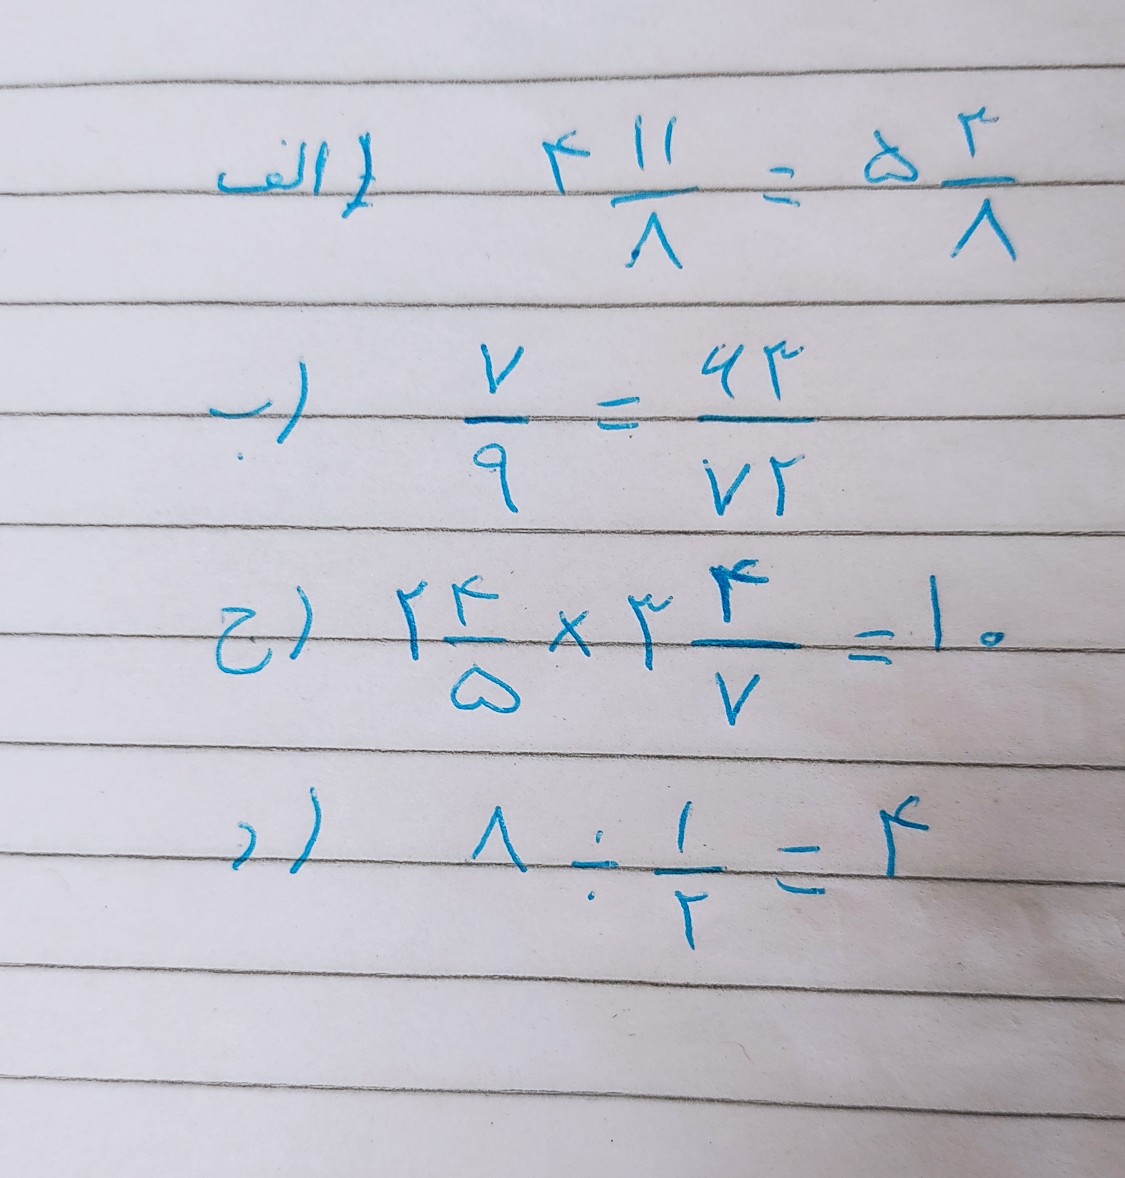 الف) ۴ ۱۱/۸ = ۵ ۳/۸
ب) ۷/۹ = ۶۳/۷۲
ج) ۲ ۴/۵ × ۳ ۴/۷ = ۱۰
د) ۸ ÷ ۱/۲ = ۴